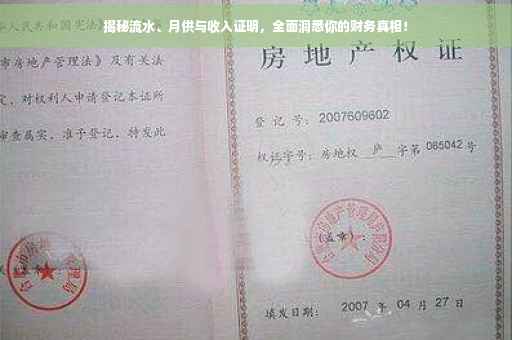 揭秘流水、月供与收入证明，全面洞悉你的财务真相！
华人民共和国宪法》
市房地产管理法》及有关
定，对权利人申请登记本证所
审查属实，准予登记，特发此
房地产权证
登记号：2007609602
权证字号：房地权 庐 字第 085042 号
（盖章）：
填发日期：2007 年 04 月 27 日